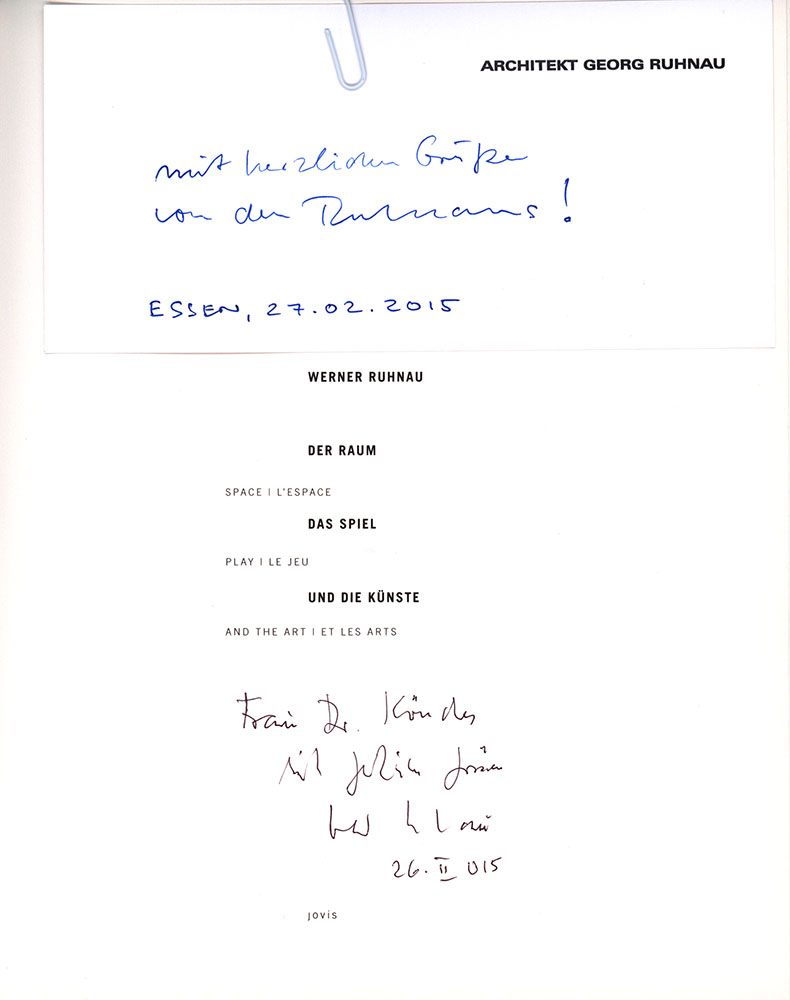 ARCHITEKT GEORG RUHNAU
mit herzlichen Grüßen
von den Ruhnaus!
ESSEN, 27.02.2015
WERNER RUHNAU
DER RAUM
SPACE | L'ESPACE
DAS SPIEL
PLAY | LE JEU
UND DIE KÜNSTE
AND THE ART | ET LES ARTS
Frau Dr.
mit
26. II 015
jovis